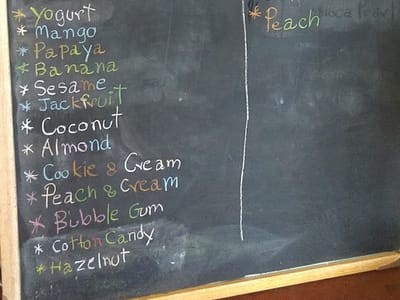 * Yogurt
* Mango
* Papaya
* Banana
* Sesame
* Jackfruit
* Coconut
* Almond
* Cookie & Cream
* Peach & Cream
* Bubble Gum
* Cotton Candy
* Hazelnut
* Peach